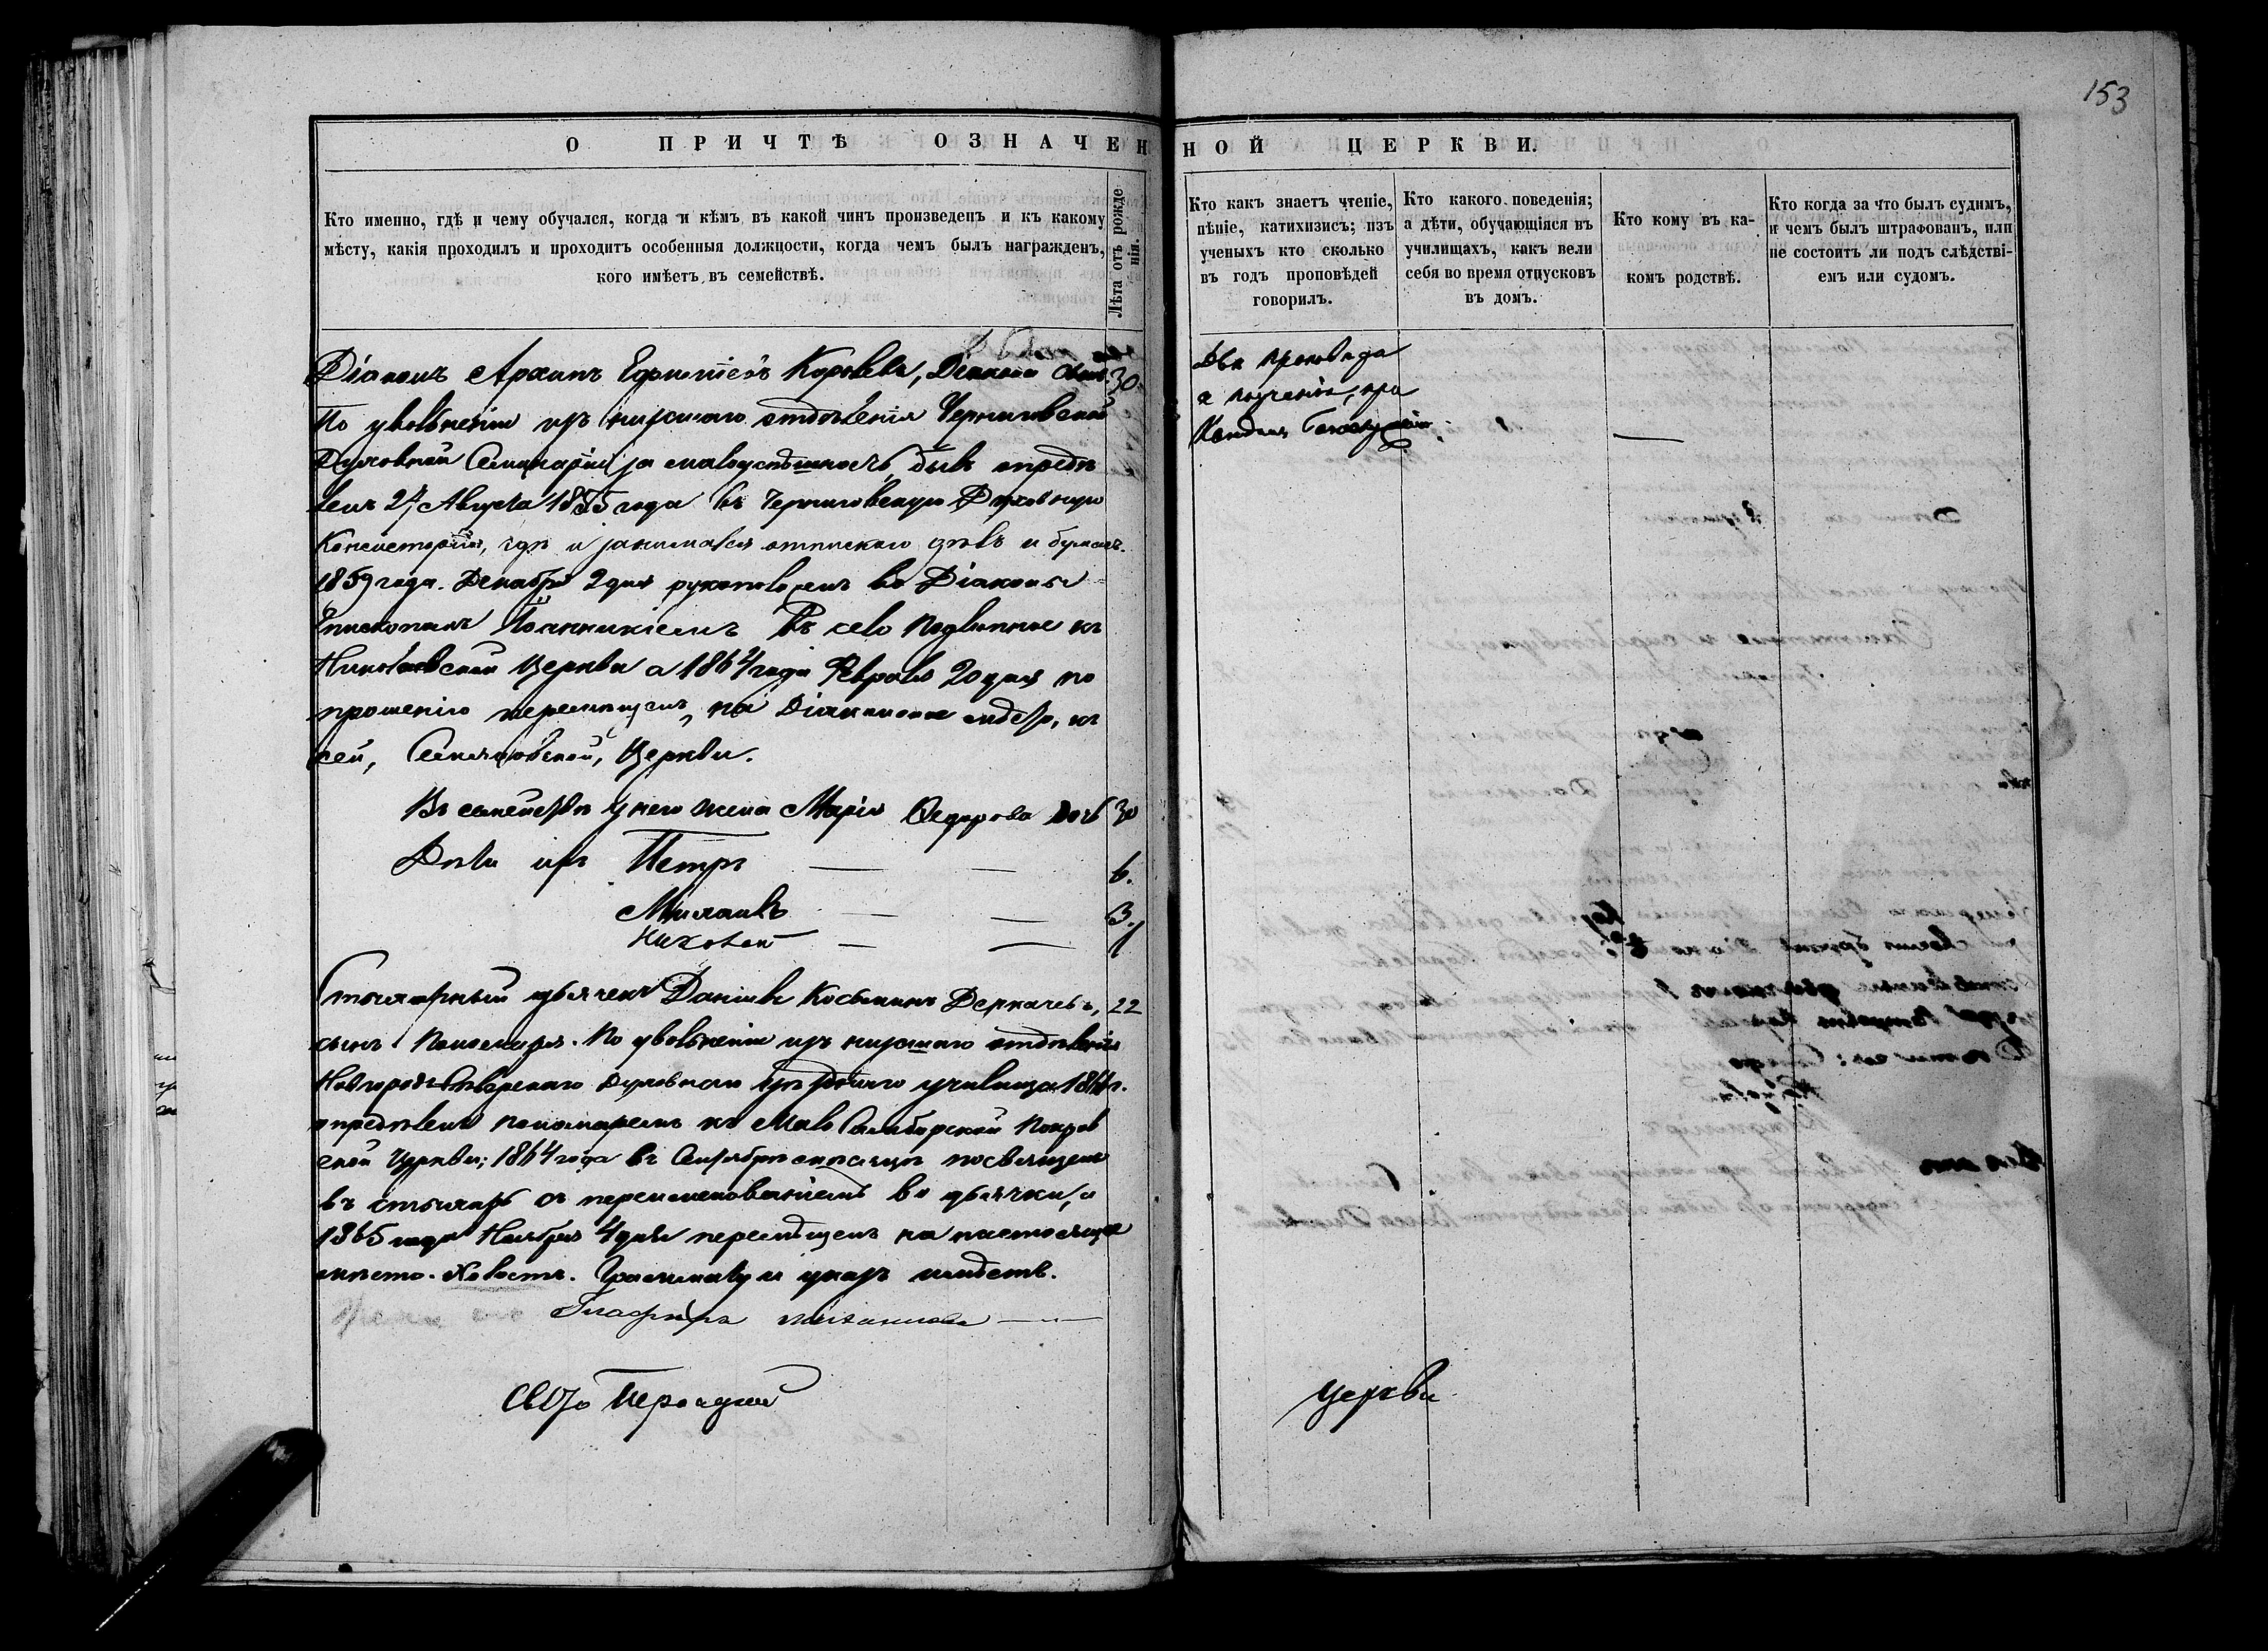 153
О ПРИЧТѢ ОЗНАЧЕННОЙ ЦЕРКВИ.
Кто именно, гдѣ и чему обучался, когда и кѣмъ въ какой чинъ произведенъ и къ какому
мѣсту, какія проходилъ и проходитъ особенныя должности, когда чемъ былъ награжденъ,
кого имѣетъ въ семействѣ.
Лѣта отъ рожденія.
Кто какъ знаетъ чтеніе,
пѣніе, катихизисъ; изъ
ученыхъ кто сколько
въ годъ проповѣдей
говорилъ.
Кто какого поведенія;
а дѣти, обучающіяся въ
училищахъ, какъ вели
себя во время отпусковъ
въ домъ.
Кто кому въ ка-
комъ родствѣ.
Кто когда за что былъ судимъ,
и чемъ былъ штрафованъ, или
не состоитъ ли подъ слѣдстві-
емъ или судомъ.
Діаконъ Архипъ Королевъ, Діакона сынъ 30
По увольненіи изъ низшаго отдѣленія Черниговской
Духовной Семинаріи за малоуспѣшность, былъ опредѣ
ленъ 27 Августа 1855 года въ Черниговскую Духовную
Консисторію, гдѣ и занимался отпискою дѣлъ и бумагъ.
1859 года. Декабря 2 дня рукоположенъ во Діакона
Епископомъ Іоанникіемъ Въ село к
Николаевской Церкви а 1864 года Февраля 20 дня по
прошенію перемѣщенъ на Діаконское мѣсто, къ
сей, Церкви.
Въ семействѣ у него жена Марія Федорова дочь 30
Дѣти ихъ Петръ 6.
Михаилъ 3.
Николай 1
Стихарный дьячекъ Даніилъ Косьминъ Деркачевъ, 22
сынъ Пономаря. По увольненіи изъ низшаго отдѣленія
Новгородсѣверскаго Духовнаго Уѣзднаго училища
опредѣленъ пономаремъ къ Мало Покров
ской Церкви; 1864 года въ Сентябрѣ мѣсяцѣ посвященъ
въ стихарь съ переименованіемъ во дьячки, а
1865 года Ноября 4 дня перемѣщенъ на настоящее
мѣсто. Холостъ. Грамматy и указъ имѣетъ.
Глафира
Іерондій
Двѣ проповѣди
а поученія, при
церкви